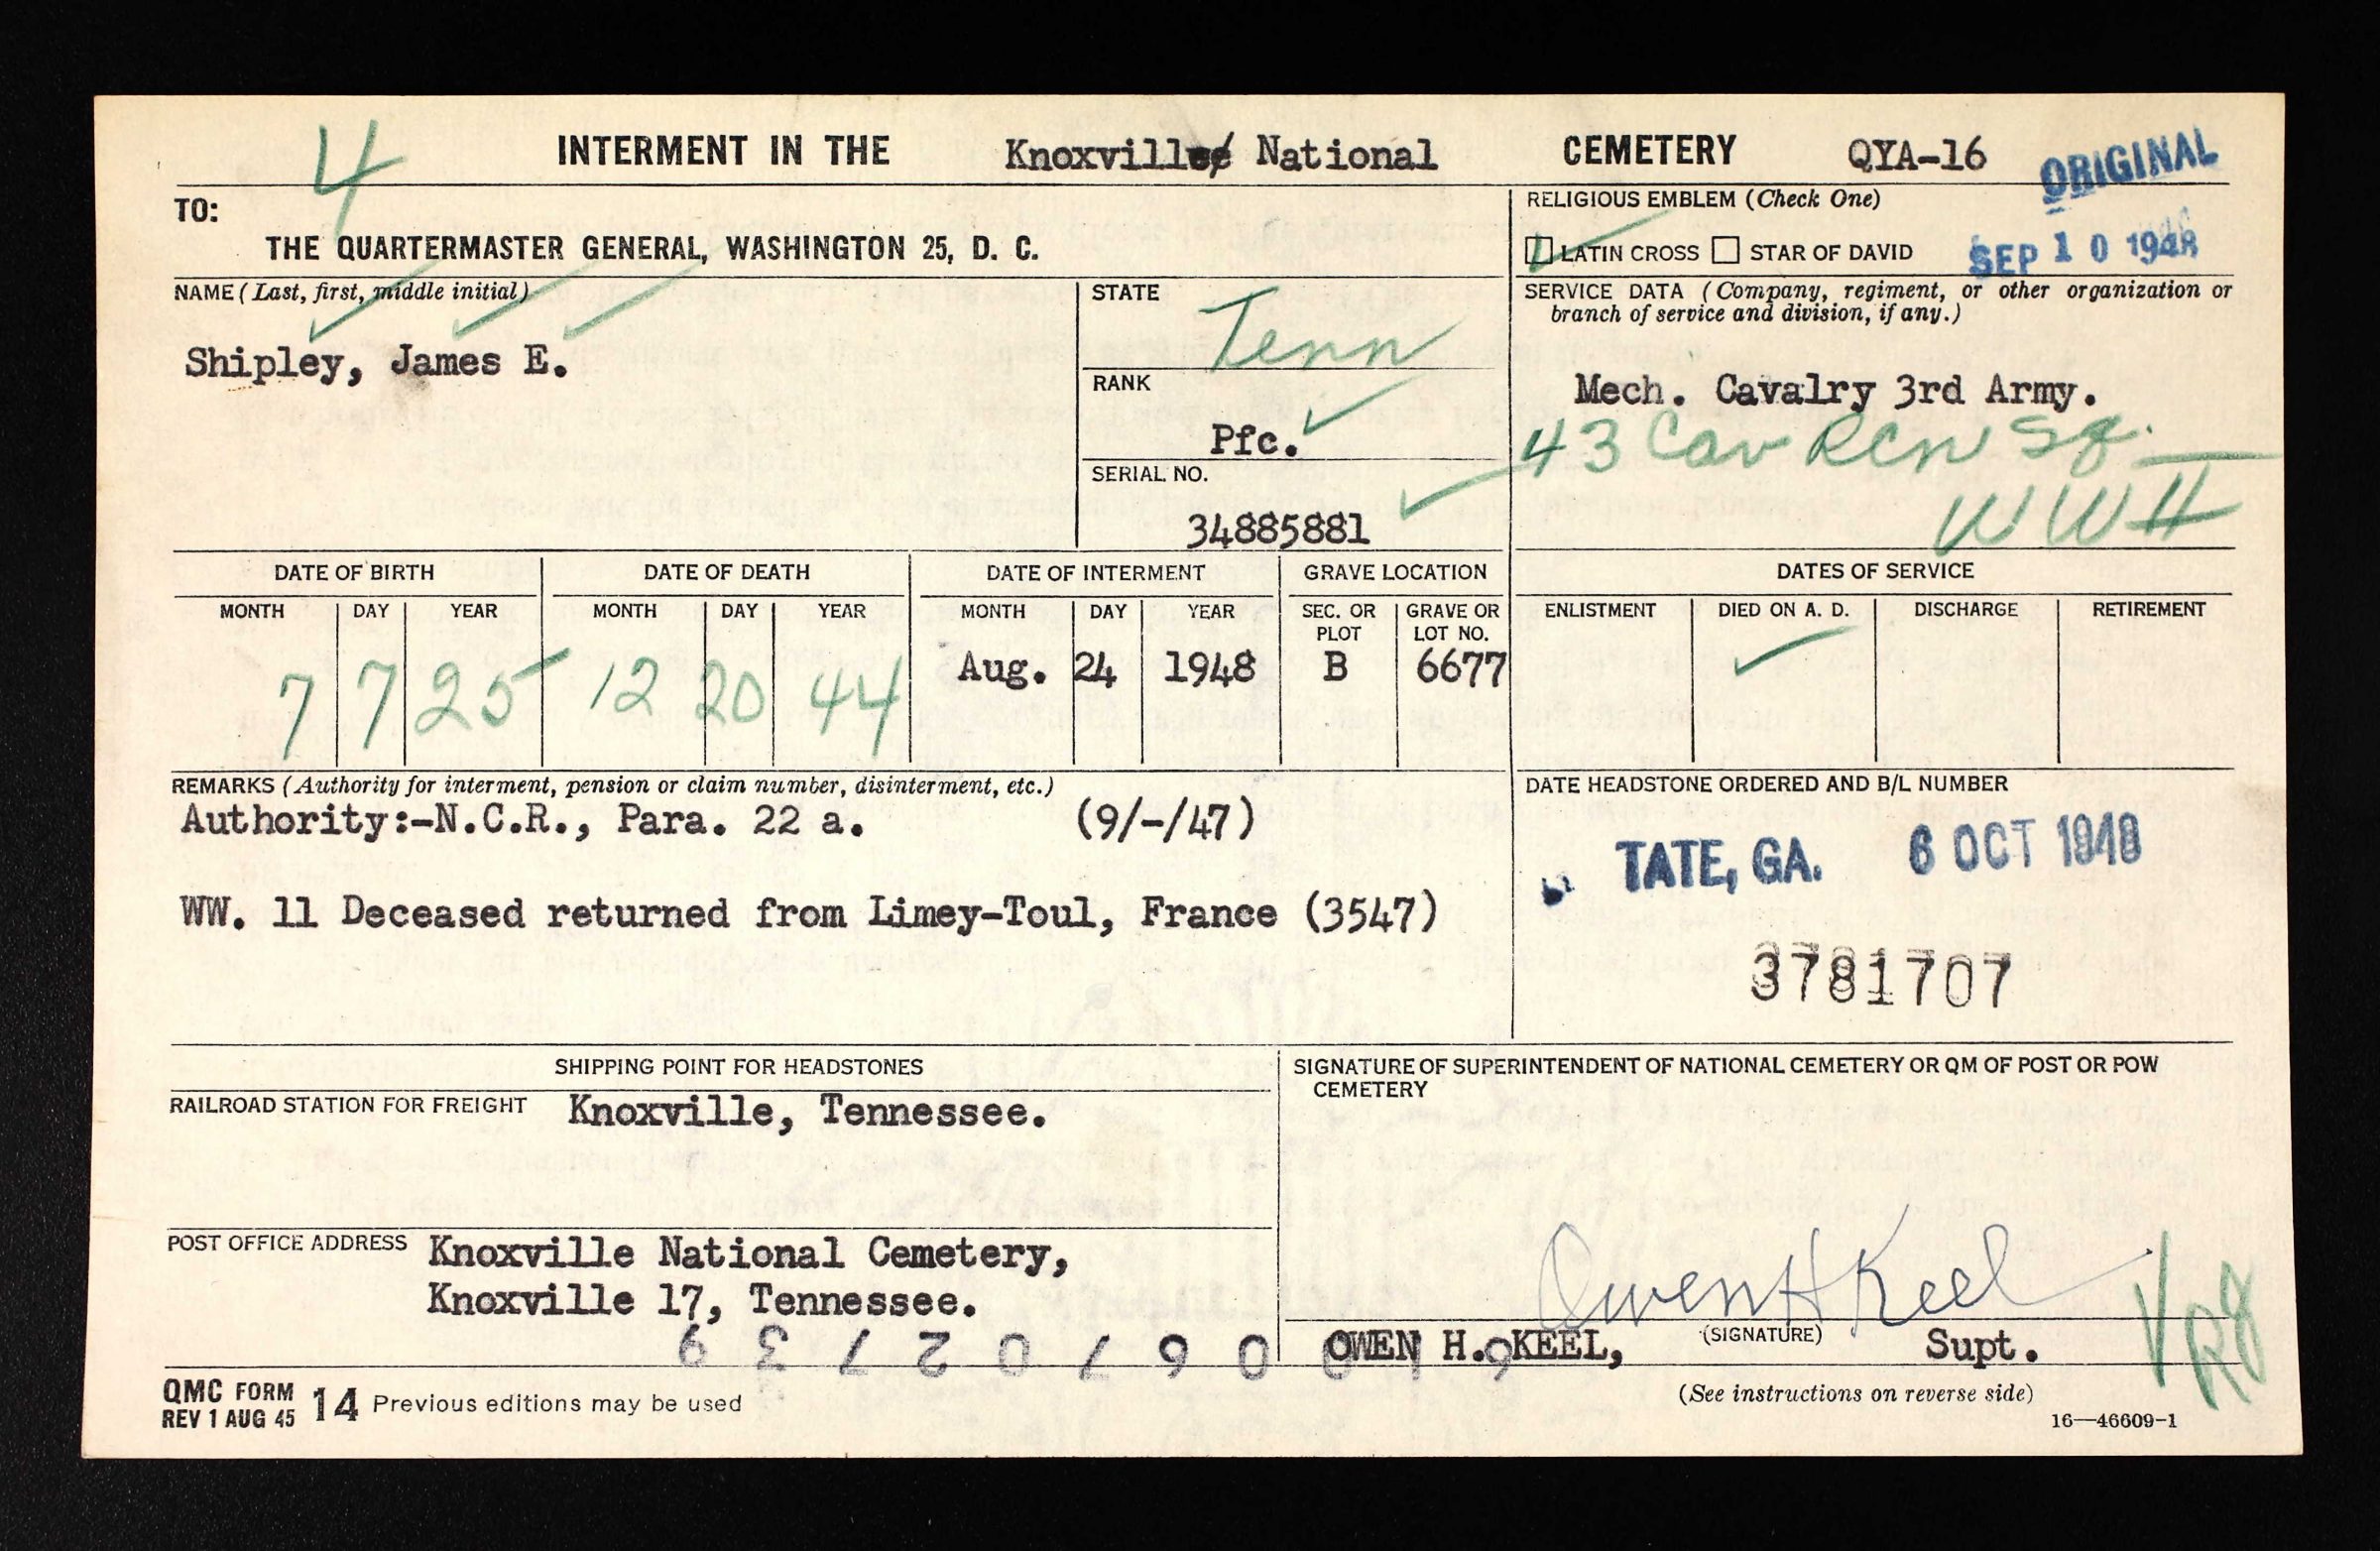 4
INTERMENT IN THE Knoxville National CEMETERY QYA-16
ORIGINAL
TO:
THE QUARTERMASTER GENERAL, WASHINGTON 25, D. C.
RELIGIOUS EMBLEM (Check One)
LATIN CROSS STAR OF DAVID
SEP 10 1948
NAME (Last, first, middle initial)
Shipley, James E.
STATE
Tenn
RANK
Pfc.
SERIAL NO.
34885881
SERVICE DATA (Company, regiment, or other organization or
branch of service and division, if any.)
Mech. Cavalry 3rd Army.
43 Cav Rcn Sq.
WW II
DATE OF BIRTH DATE OF DEATH DATE OF INTERMENT GRAVE LOCATION DATES OF SERVICE
MONTH DAY YEAR MONTH DAY YEAR MONTH DAY YEAR SEC. OR PLOT GRAVE OR LOT NO. ENLISTMENT DIED ON A. D. DISCHARGE RETIREMENT
7 7 25 12 20 44 Aug. 24 1948 B 6677
REMARKS (Authority for interment, pension or claim number, disinterment, etc.)
Authority:-N.C.R., Para. 22 a. (9/-/47)
WW. 11 Deceased returned from Limey-Toul, France (3547)
DATE HEADSTONE ORDERED AND B/L NUMBER
TATE, GA. 6 OCT 1948
3781707
SHIPPING POINT FOR HEADSTONES
RAILROAD STATION FOR FREIGHT Knoxville, Tennessee.
POST OFFICE ADDRESS Knoxville National Cemetery,
Knoxville 17, Tennessee.
SIGNATURE OF SUPERINTENDENT OF NATIONAL CEMETERY OR QM OF POST OR POW
CEMETERY
Owen H Keel
(SIGNATURE)
OWEN H. KEEL, Supt.
QMC FORM 14 Previous editions may be used
REV 1 AUG 45
(See instructions on reverse side)
16—46609-1